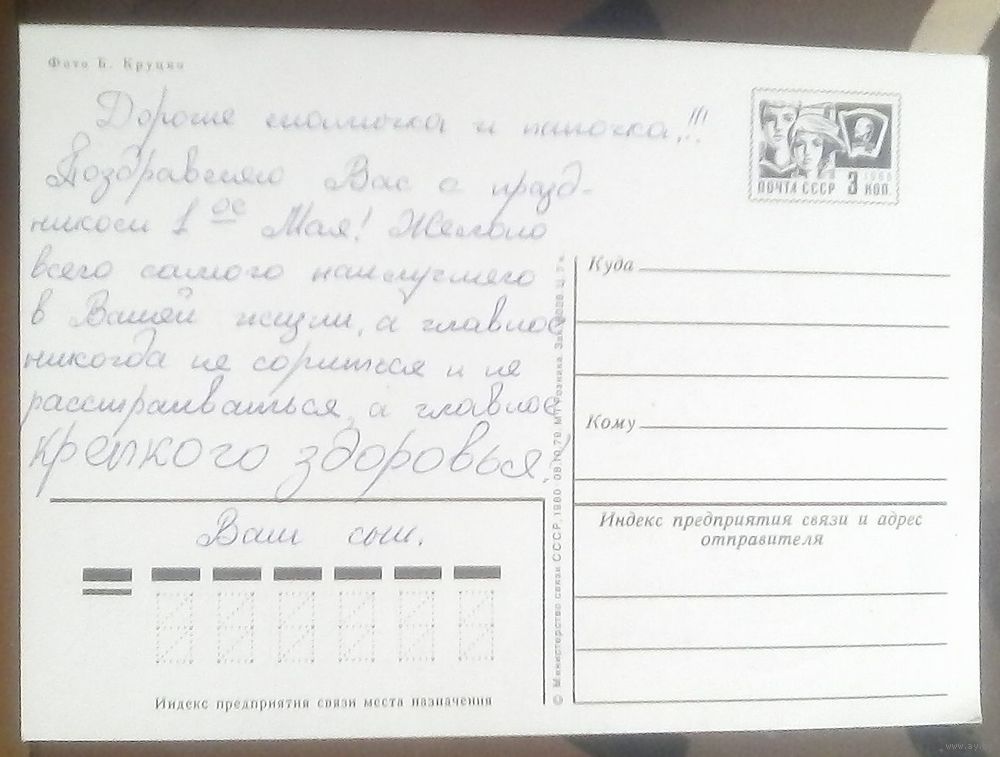 Фото Б. Круцко
Дорогие мамочка и папочка!!!
Поздравляю Вас с празд-
ником 1 ое Мая! Желаю
всего самого наилучшего
в Вашей жизни, а главное
никогда не сориться и не
расстраиваться, а главное
крепкого здоровья!
Ваш сын.
Индекс предприятия связи места назначения
© Министерство связи СССР, 1980. 08.10.79. МТ. Розница.
ПОЧТА СССР 3 КОП.
1966
Куда
Кому
Индекс предприятия связи и адрес
отправителя
www.ay